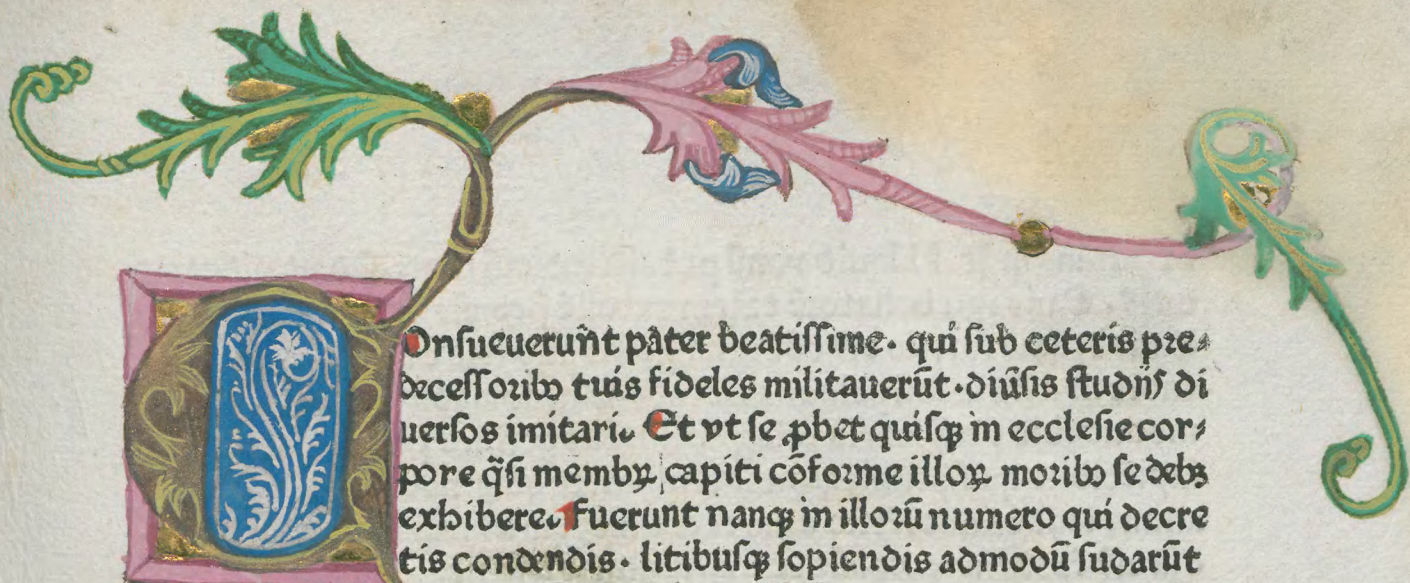 COnsueuerūt pater beatissime. qui sub ceteris pre⸗
decessoribꝰ tuis fideles militauerūt. diūsis studiis di
uersos imitari. Et vt se ꝓbet quisqꝫ in ecclesie cor⸗
pore q̄si membꝝ capiti cōforme illoꝝ moribꝰ se debꝫ
exhibere. Fuerunt nanqꝫ in illorū numero qui decre
tis condendis. litibusqꝫ sopiendis admodū sudarūt